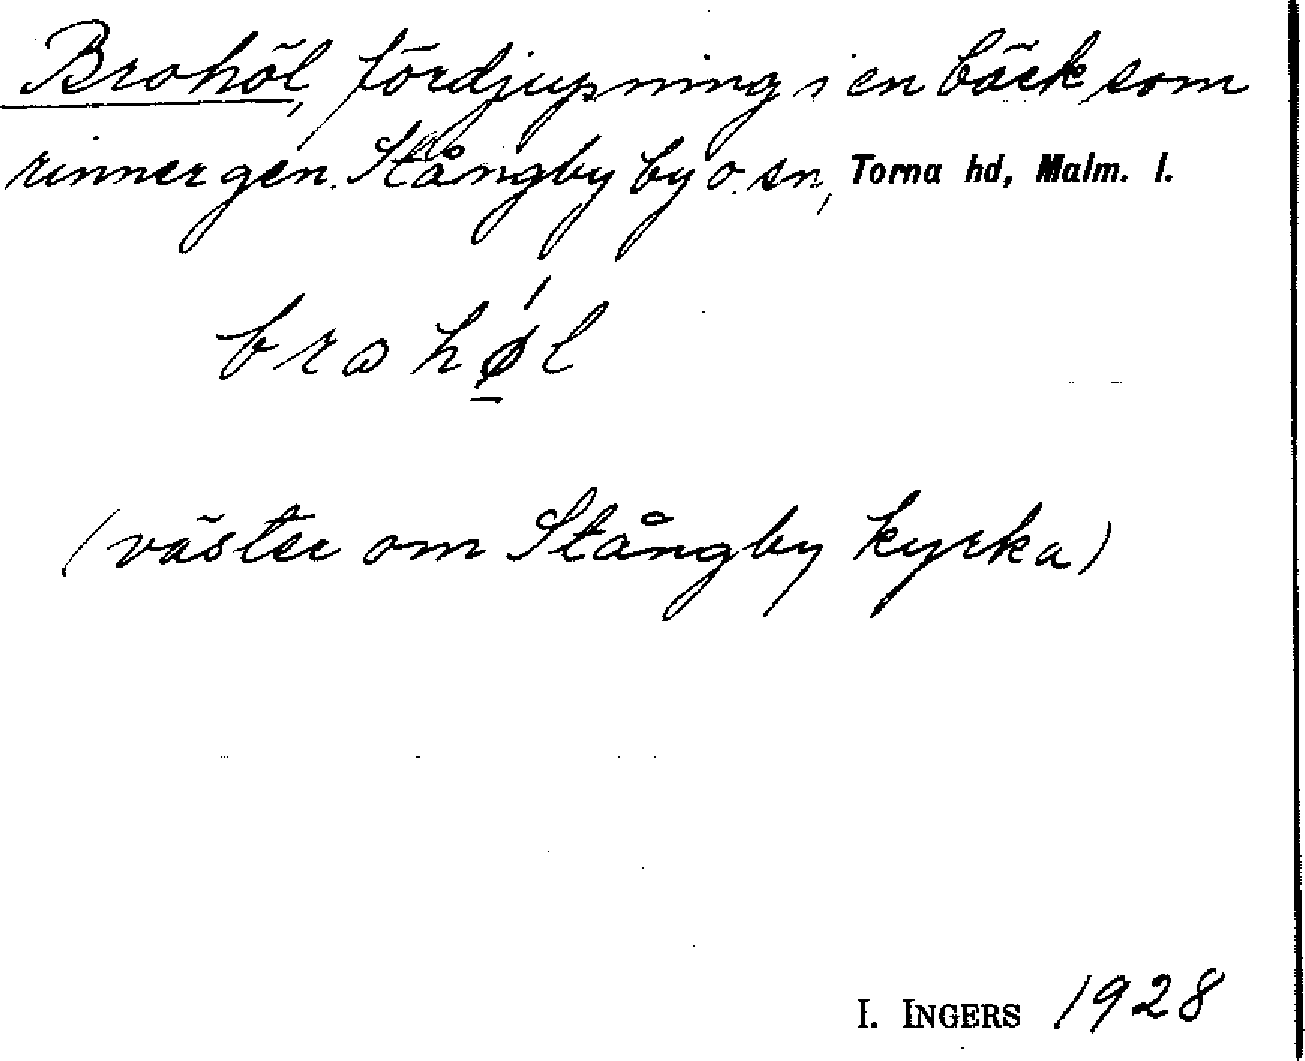 Brohöl, fördjupning i en bäck som
rinner gen. Stångby by o. sn, Torna hd, Malm. l.
brohǿ̱l
(väster om Stångby kyrka)
I. INGERS 1928